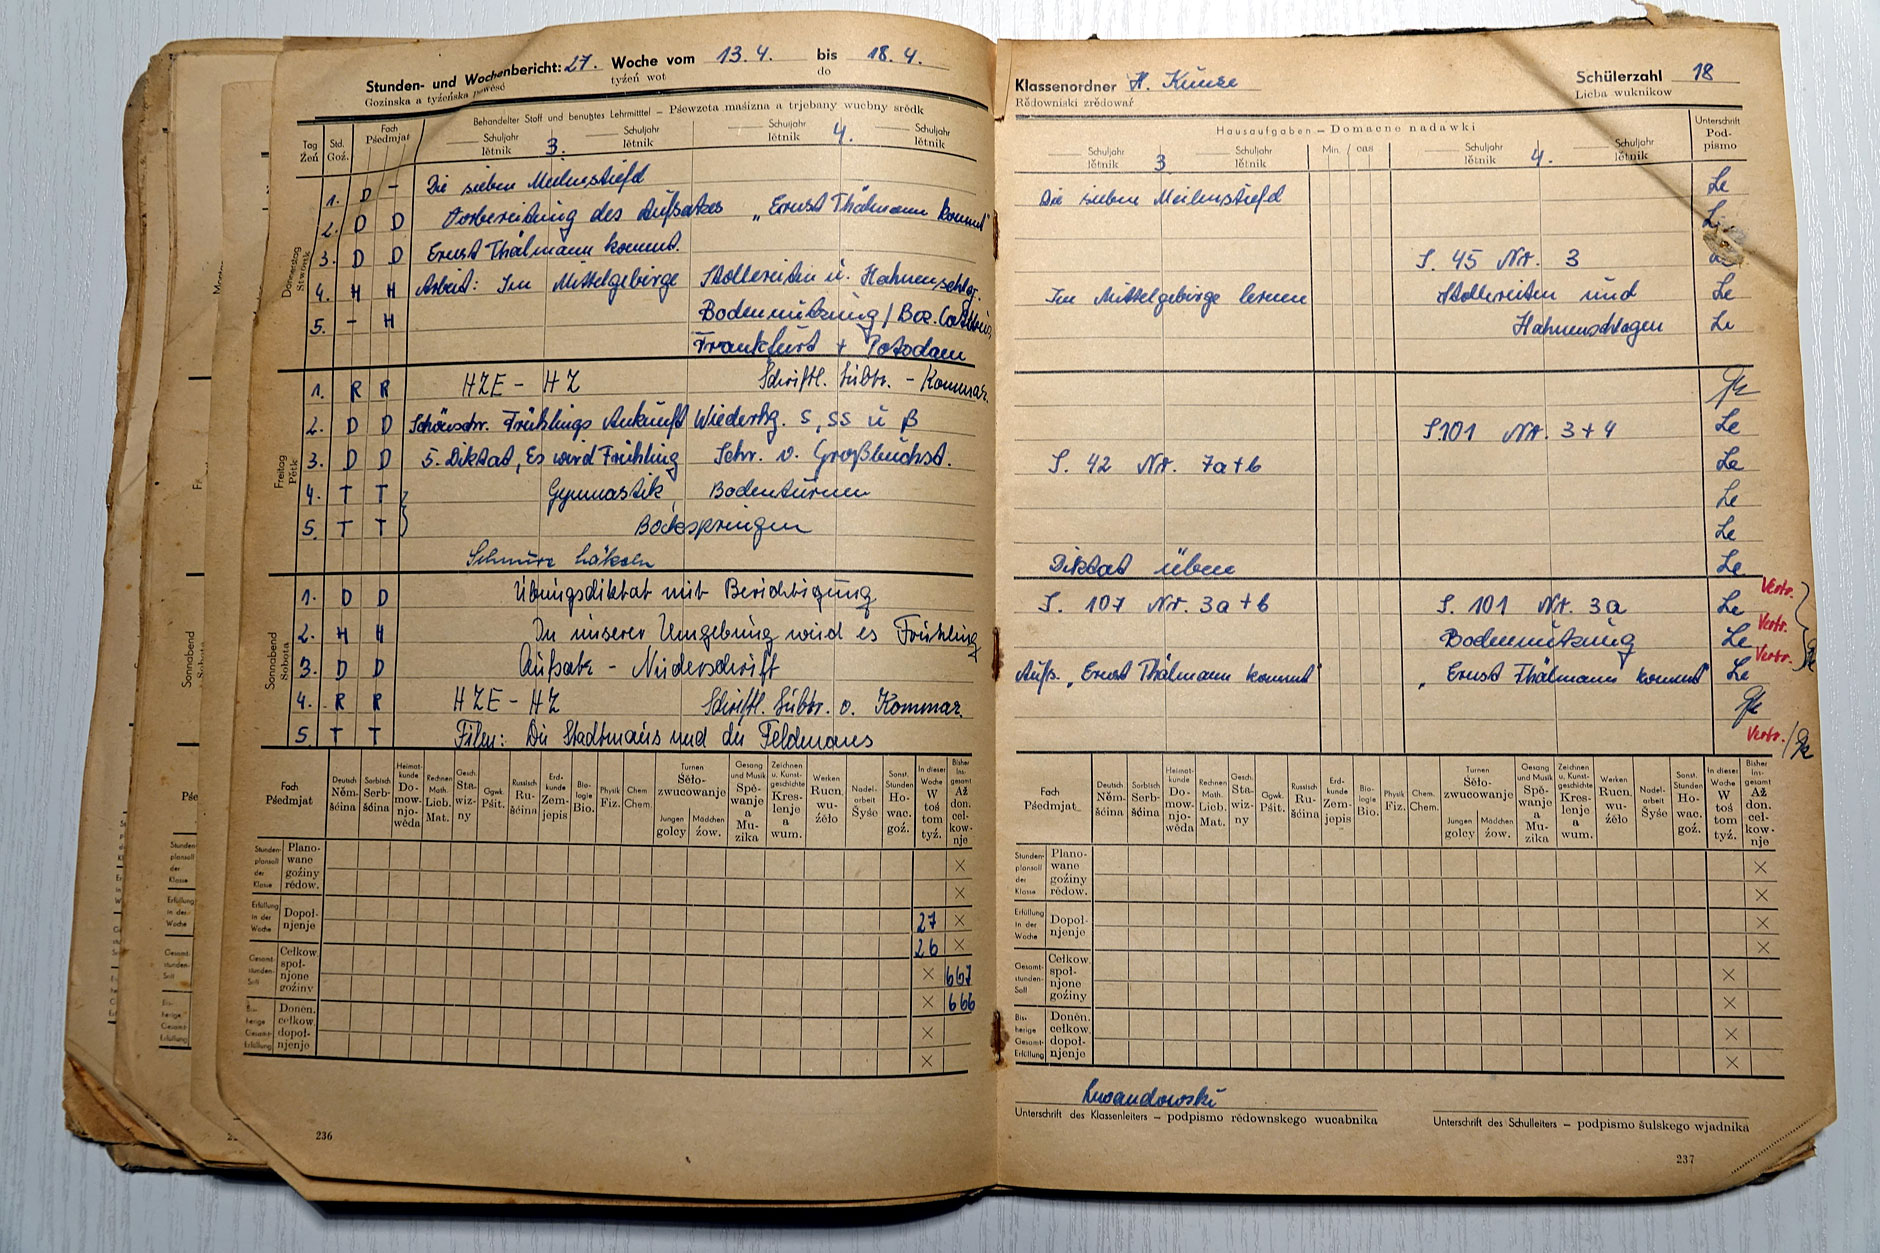 Stunden- und Wochenbericht: 27. Woche vom 13. 4. bis 18. 4.
Goźinska a tyźeńska powěsć tyźeń wot do
Behandelter Stoff und benutztes Lehrmittel – Pśewzeta maśizna a trjebany wucbny srědk
Tag Źeń Std. Goź. Fach Pśedmjat
Schuljahr lětnik 3. Schuljahr lětnik Schuljahr lětnik 4. Schuljahr lětnik
Donnerstag Stwórtk
1. D – Die sieben Meilenstiefel
2. D D Vorbereitung des Aufsatzes „Ernst Thälmann kommt"
3. D D Ernst Thälmann kommt.
4. H H Arbeit: Im Mittelgebirge Stollereiten u. Hahnenschlg.
5. – H Bodennutzung / Bez. Cottbus,
Frankfurt + Potsdam
Freitag Pětk
1. R R HZE – HZ Schriftl. Subtr. – Kommaz.
2. D D Schönschr. Frühlings Ankunft Wiederhg. s, ss u ß
3. D D 5. Diktat „Es wird Frühling Schr. v. Großbuchst.
4. T T Gymnastik, Bodenturnen
5. T T Bockspringen
Schnure häkeln
Sonnabend Sobota
1. D D Übungsdiktat mit Berichtigung
2. H H In unserer Umgebung wird es Frühling
3. D D Aufsatz – Niederschrift
4. R R HZE – HZ Schriftl. Subtr. v. Kommaz.
5. T T Film: Die Stadtmaus und die Feldmaus
Fach Pśedmjat
Deutsch Němšćina
Sorbisch Serbšćina
Heimatkunde Domownjowěda
Rechnen Math. Licb. Mat.
Gesch. Stawizny
Ggwk. Pśit.
Russisch Rušćina
Erdkunde Zemjepis
Biologie Bio.
Physik Fiz.
Chem. Chem.
Turnen Śěłozwucowanje
Jungen golcy Mädchen źow.
Gesang und Musik Spěwanje a Muzika
Zeichnen u. Kunstgeschichte Kreslenje a wum.
Werken Rucn. wuźěło
Nadelarbeit Šyśe
Sonst. Stunden Howac. goź.
In dieser Woche W toś tom tyź.
Bisher insgesamt Až don. celkownje
Stundenplansoll der Klasse Planowane goźiny rědow. × ×
Erfüllung in der Woche Dopołnjenje 27 × 26 ×
Gesamtstundensoll Celkow. społnjone goźiny × 667 × 666
Bisherige Gesamterfüllung Doněn. celkow. dopołnjenje × ×
236
Klassenordner H. Kunze Schülerzahl 18
Rědowniski zrědowaŕ Licba wuknikow
Hausaufgaben – Domacne nadawki Unterschrift Podpismo
Schuljahr lětnik 3 Schuljahr lětnik Min. / cas Schuljahr lětnik 4. Schuljahr lětnik
Die sieben Meilenstiefel Le
S. 45 Nr. 3
Im Mittelgebirge lernen Stollereiten und Le
Hahnenschlagen Le
S. 101 Nr. 3 + 4 Le
S. 42 Nr. 7a + b Le
Le
Le
Diktat üben Le
S. 107 Nr. 3a + b S. 101 Nr. 3a Le Vertr.
Bodennutzung Le Vertr.
Aufs. „Ernst Thälmann kommt" „Ernst Thälmann kommt" Le Vertr.
Vertr.
Fach Pśedmjat
Deutsch Němšćina
Sorbisch Serbšćina
Heimatkunde Domownjowěda
Rechnen Math. Licb. Mat.
Gesch. Stawizny
Ggwk. Pśit.
Russisch Rušćina
Erdkunde Zemjepis
Biologie Bio.
Physik Fiz.
Chem. Chem.
Turnen Śěłozwucowanje
Jungen golcy Mädchen źow.
Gesang und Musik Spěwanje a Muzika
Zeichnen u. Kunstgeschichte Kreslenje a wum.
Werken Rucn. wuźěło
Nadelarbeit Šyśe
Sonst. Stunden Howac. goź.
In dieser Woche W toś tom tyź.
Bisher insgesamt Až don. celkownje
Stundenplansoll der Klasse Planowane goźiny rědow. × ×
Erfüllung in der Woche Dopołnjenje × ×
Gesamtstundensoll Celkow. społnjone goźiny × ×
Bisherige Gesamterfüllung Doněn. celkow. dopołnjenje × ×
Lewandowski
Unterschrift des Klassenleiters – podpismo rědownskego wucabnika Unterschrift des Schulleiters – podpismo šulskego wjadnika
237